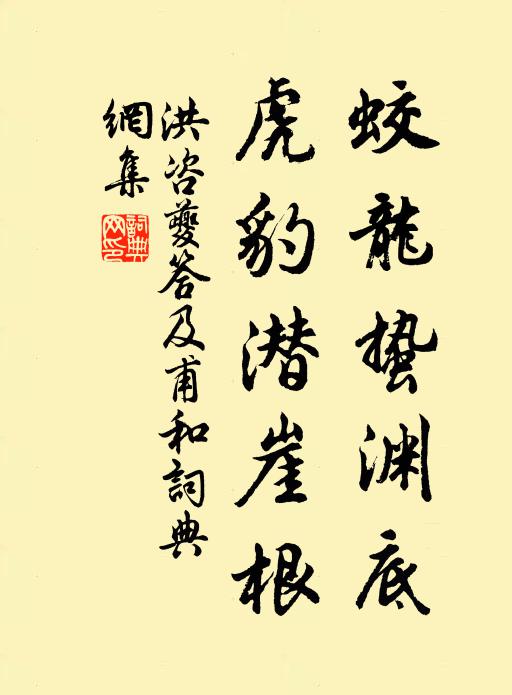 蛟龍蟄渊底
虎豹潜崖根
洪咨夔答及甫和詞典
網集
詞典網印